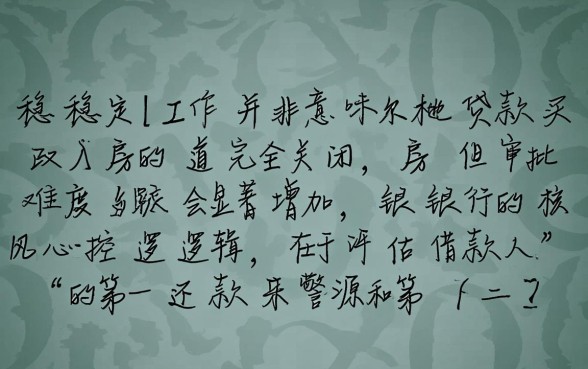 稳稳定 工作 并非意味尔她 贷款买
政入房的 道 完全关闭，房 但审批
难度 会显著增加，银银行的核
风心控 逻 逻辑，在于评估借款人”
“的第一还款来警源和第（二？